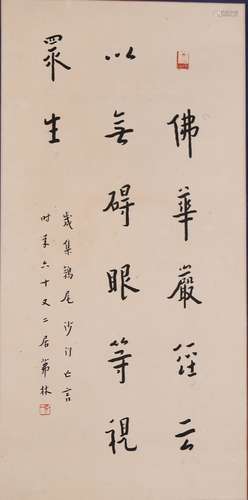 佛華嚴經云
以無碍眼等視
眾生
歲集鶉尾沙門亡言
時年六十又二居茀林